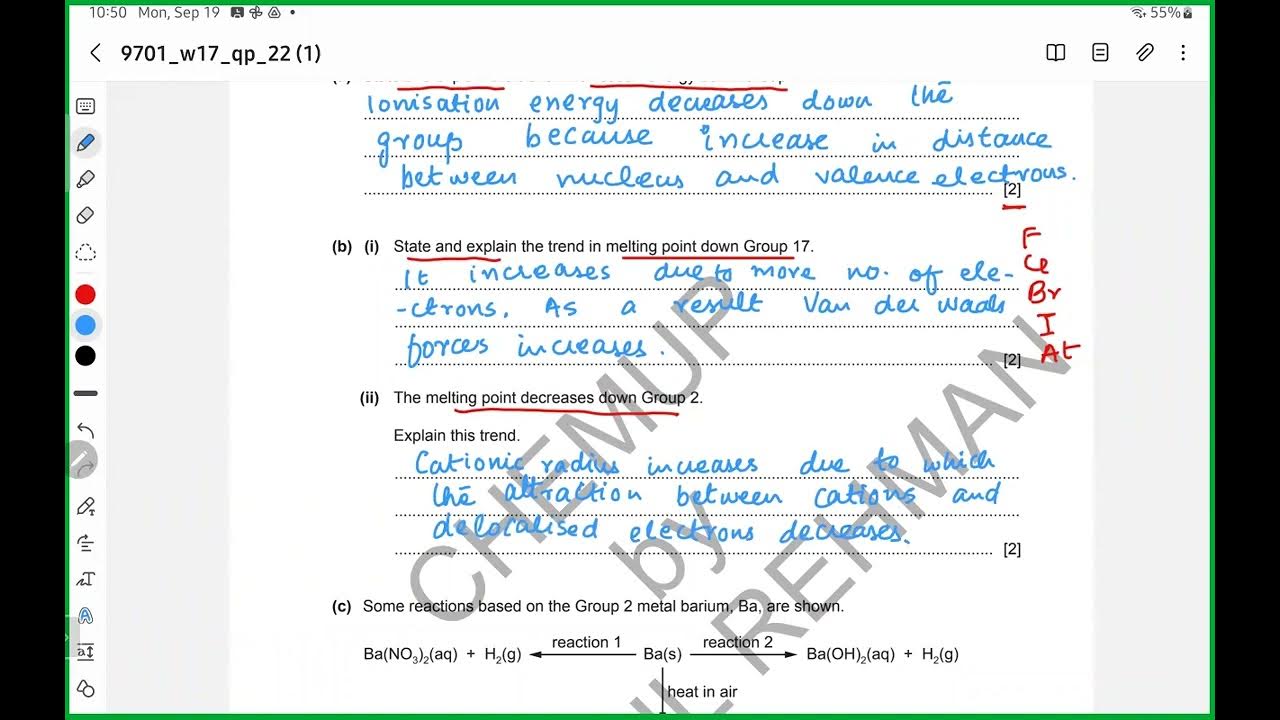 10:50 Mon, Sep 19
55%
9701_w17_qp_22 (1)
Ionisation energy decreases down the
group because increase in distance
between nucleus and valence electrons.
[2]
(b) (i) State and explain the trend in melting point down Group 17.
It increases due to more no. of ele-
-ctrons. As a result Van der Waals
forces increases.
[2]
F
Cl
Br
I
At
(ii) The melting point decreases down Group 2.
Explain this trend.
Cationic radius increases due to which
the attraction between cations and
delocalised electrons decreases.
[2]
(c) Some reactions based on the Group 2 metal barium, Ba, are shown.
Ba(NO3)2(aq) + H2(g) reaction 1 Ba(s) reaction 2 Ba(OH)2(aq) + H2(g)
heat in air
CHEMUP
by
REHMAN